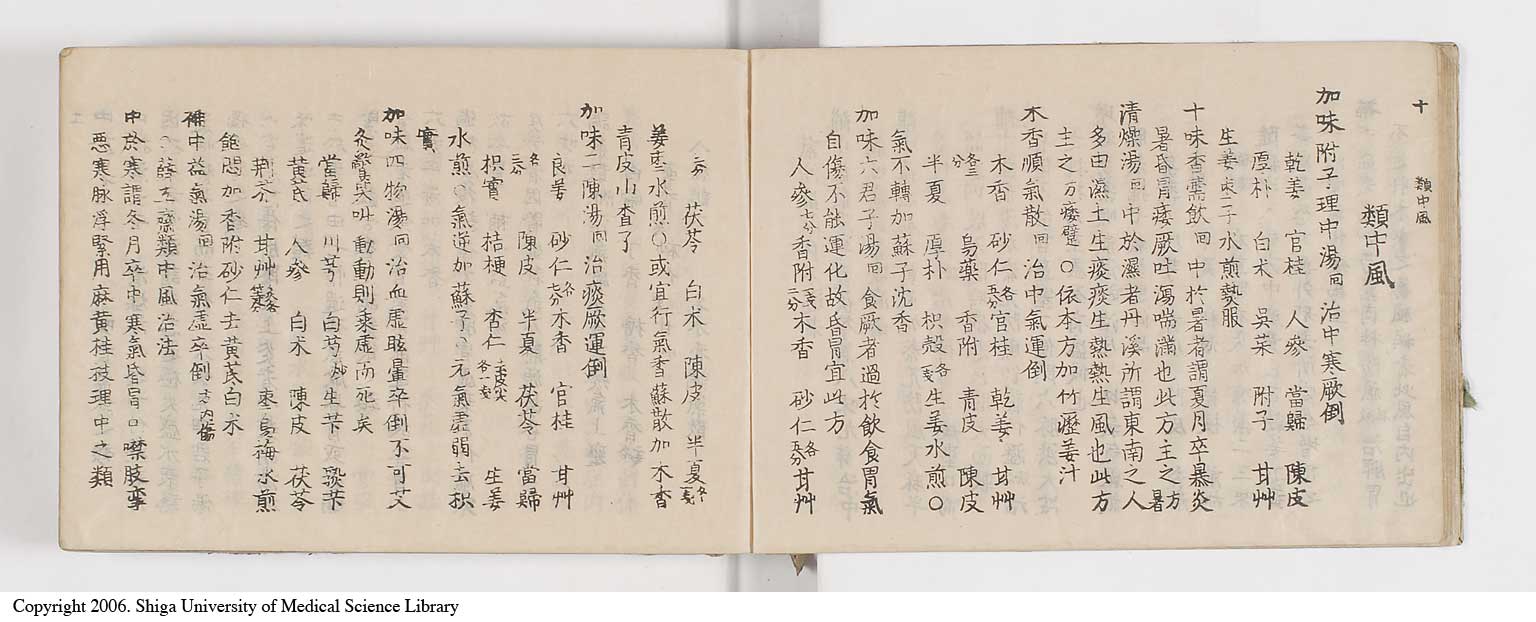 十　類中風
類中風
加味附子理中湯回　治中寒厥倒
乾姜　官桂　人參　當歸　陳皮
厚朴　白朮　吳茱　附子　甘艸
生姜　枣二子水煎熱服
十味香薷飲回　中於暑者謂夏月卒暴炎
暑昏冒痿厥吐瀉喘滿也此方主之暑方
清燥湯回　中於濕者丹溪所謂東南之人
多由濕土生痰痰生熱熱生風也此方
主之方痿躄　〇依本方加竹瀝姜汁
木香順氣散回　治中氣運倒
木香　砂仁各五分官桂　乾姜　甘艸
各三分　烏藥　香附　青皮　陳皮
半夏　厚朴　枳殼各一戔生姜水煎〇
氣不轉加蘇子沈香
加味六君子湯回　食厥者過於飲食胃氣
自傷不能運化故昏冒宜此方
人參七分香附一戔二分木香　砂仁各五分甘艸
二分　茯苓　白朮　陳皮　半夏各一戔
姜枣水煎〇或宜行氣香蘇散加木香
青皮山査了
加味二陳湯回　治痰厥運倒
良姜　砂仁各七分木香　官桂　甘艸
各三分　陳皮　半夏　茯苓　當歸
枳實　桔梗　杏仁去皮尖各一戔　生姜
水煎〇氣逆加蘇子〇元氣虛弱去枳
實
加味四物湯回　治血虛眩暈卒倒不可艾
灸驚哭叫動動則乘虛而死矣
當歸　川芎　白芍炒生芐　熟芐
黃芪　人參　白朮　陳皮　茯苓
荊芥　甘艸各等分枣烏梅水煎
飽悶加香附砂仁去黃芪白朮
補中益氣湯回　治氣虛卒倒方内傷
〇薛立齋類中風治法
中於寒謂冬月卒中寒氣昏冒口噤肢攣
惡寒脉浮緊用麻黃桂枝理中之類
Copyright 2006. Shiga University of Medical Science Library